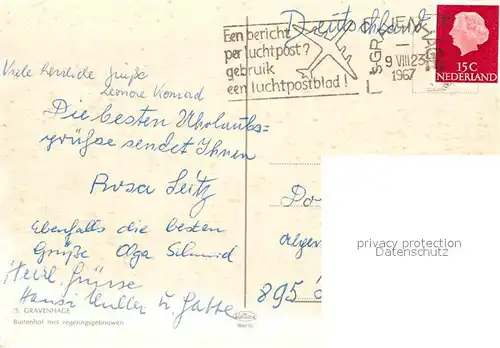 Deutschland
Een bericht
per luchtpost?
gebruik
een luchtpostblad!
'S GRAVENHAGE
9 VIII 23
1967
15 C
NEDERLAND
Viele herzliche Grüße
Leonore Konrad
Die besten Urlaubs-
grüße sendet Ihnen
Rosa Seitz
Ebenfalls die besten
Grüße Olga Schmid
Herzl. Grüsse
Hansi Müller u. Gatte
'S GRAVENHAGE
Buitenhof met regeringsgebouwen
895
privacy protection
Datenschutz